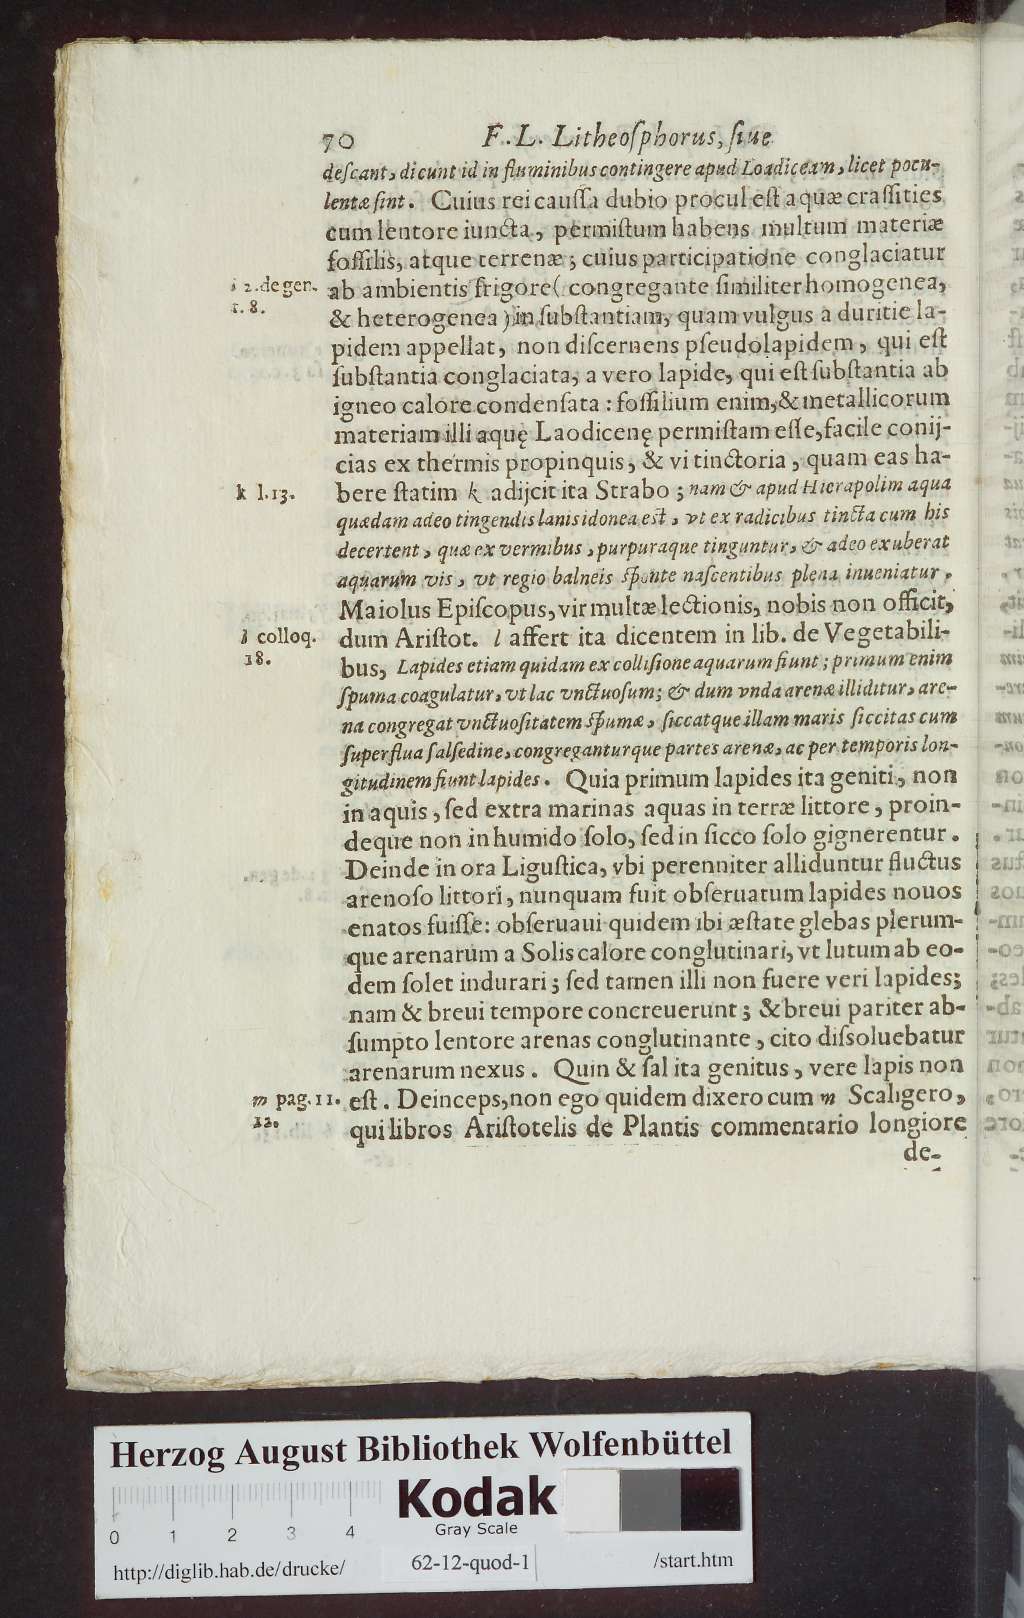 70 F. L. Litheoſphorus, ſiue
deſcant, dicunt id in fluminibus contingere apud Loadiceam, licet pocu-
lentæ ſint. Cuius rei cauſſa dubio procul eſt aquæ craſſities
cum lentore iuncta, permiſtum habens multum materiæ
foſſilis, atque terrenæ; cuius participatione conglaciatur
i 2. de gen. ab ambientis frigore (congregante ſimiliter homogenea,
t. 8. & heterogenea) in ſubſtantiam, quam vulgus a duritie la-
pidem appellat, non diſcernens pſeudolapidem, qui eſt
ſubſtantia conglaciata, a vero lapide, qui eſt ſubſtantia ab
igneo calore condenſata: foſſilium enim, & metallicorum
materiam illi aquę Laodicenę permiſtam eſſe, facile conij-
cias ex thermis propinquis, & vi tinctoria, quam eas ha-
k l. 13. bere ſtatim k adijcit ita Strabo; nam & apud Hierapolim aqua
quædam adeo tingendis lanis idonea eſt, vt ex radicibus tincta cum his
decertent, quæ ex vermibus, purpuraque tinguntur, & adeo exuberat
aquarum vis, vt regio balneis ſponte naſcentibus plena inueniatur.
Maiolus Epiſcopus, vir multæ lectionis, nobis non officit,
l colloq. dum Ariſtot. l affert ita dicentem in lib. de Vegetabili-
18. bus, Lapides etiam quidam ex colliſione aquarum fiunt; primum enim
ſpuma coagulatur, vt lac vnctuoſum; & dum vnda arenæ illiditur, are-
na congregat vnctuoſitatem ſpumæ, ſiccatque illam maris ſiccitas cum
ſuperflua ſalſedine, congreganturque partes arenæ, ac per temporis lon-
gitudinem fiunt lapides. Quia primum lapides ita geniti, non
in aquis, ſed extra marinas aquas in terræ littore, proin-
deque non in humido ſolo, ſed in ſicco ſolo gignerentur.
Deinde in ora Liguſtica, vbi perenniter alliduntur fluctus
arenoſo littori, nunquam fuit obſeruatum lapides nouos
enatos fuiſſe: obſeruaui quidem ibi æſtate glebas plerum-
que arenarum a Solis calore conglutinari, vt lutum ab eo-
dem ſolet indurari; ſed tamen illi non fuere veri lapides;
nam & breui tempore concreuerunt; & breui pariter ab-
ſumpto lentore arenas conglutinante, cito diſsoluebatur
arenarum nexus. Quin & ſal ita genitus, vere lapis non
m pag. 11. eſt. Deinceps, non ego quidem dixero cum m Scaligero,
12. qui libros Ariſtotelis de Plantis commentario longiore
de-
Herzog August Bibliothek Wolfenbüttel
Kodak
Gray Scale
0 1 2 3 4
http://diglib.hab.de/drucke/ 62-12-quod-1 /start.htm